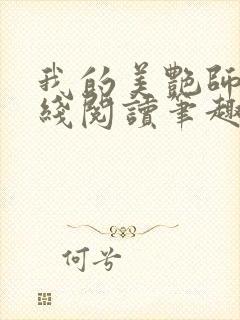 我的美艷師
綫閱讀筆趣
何兮